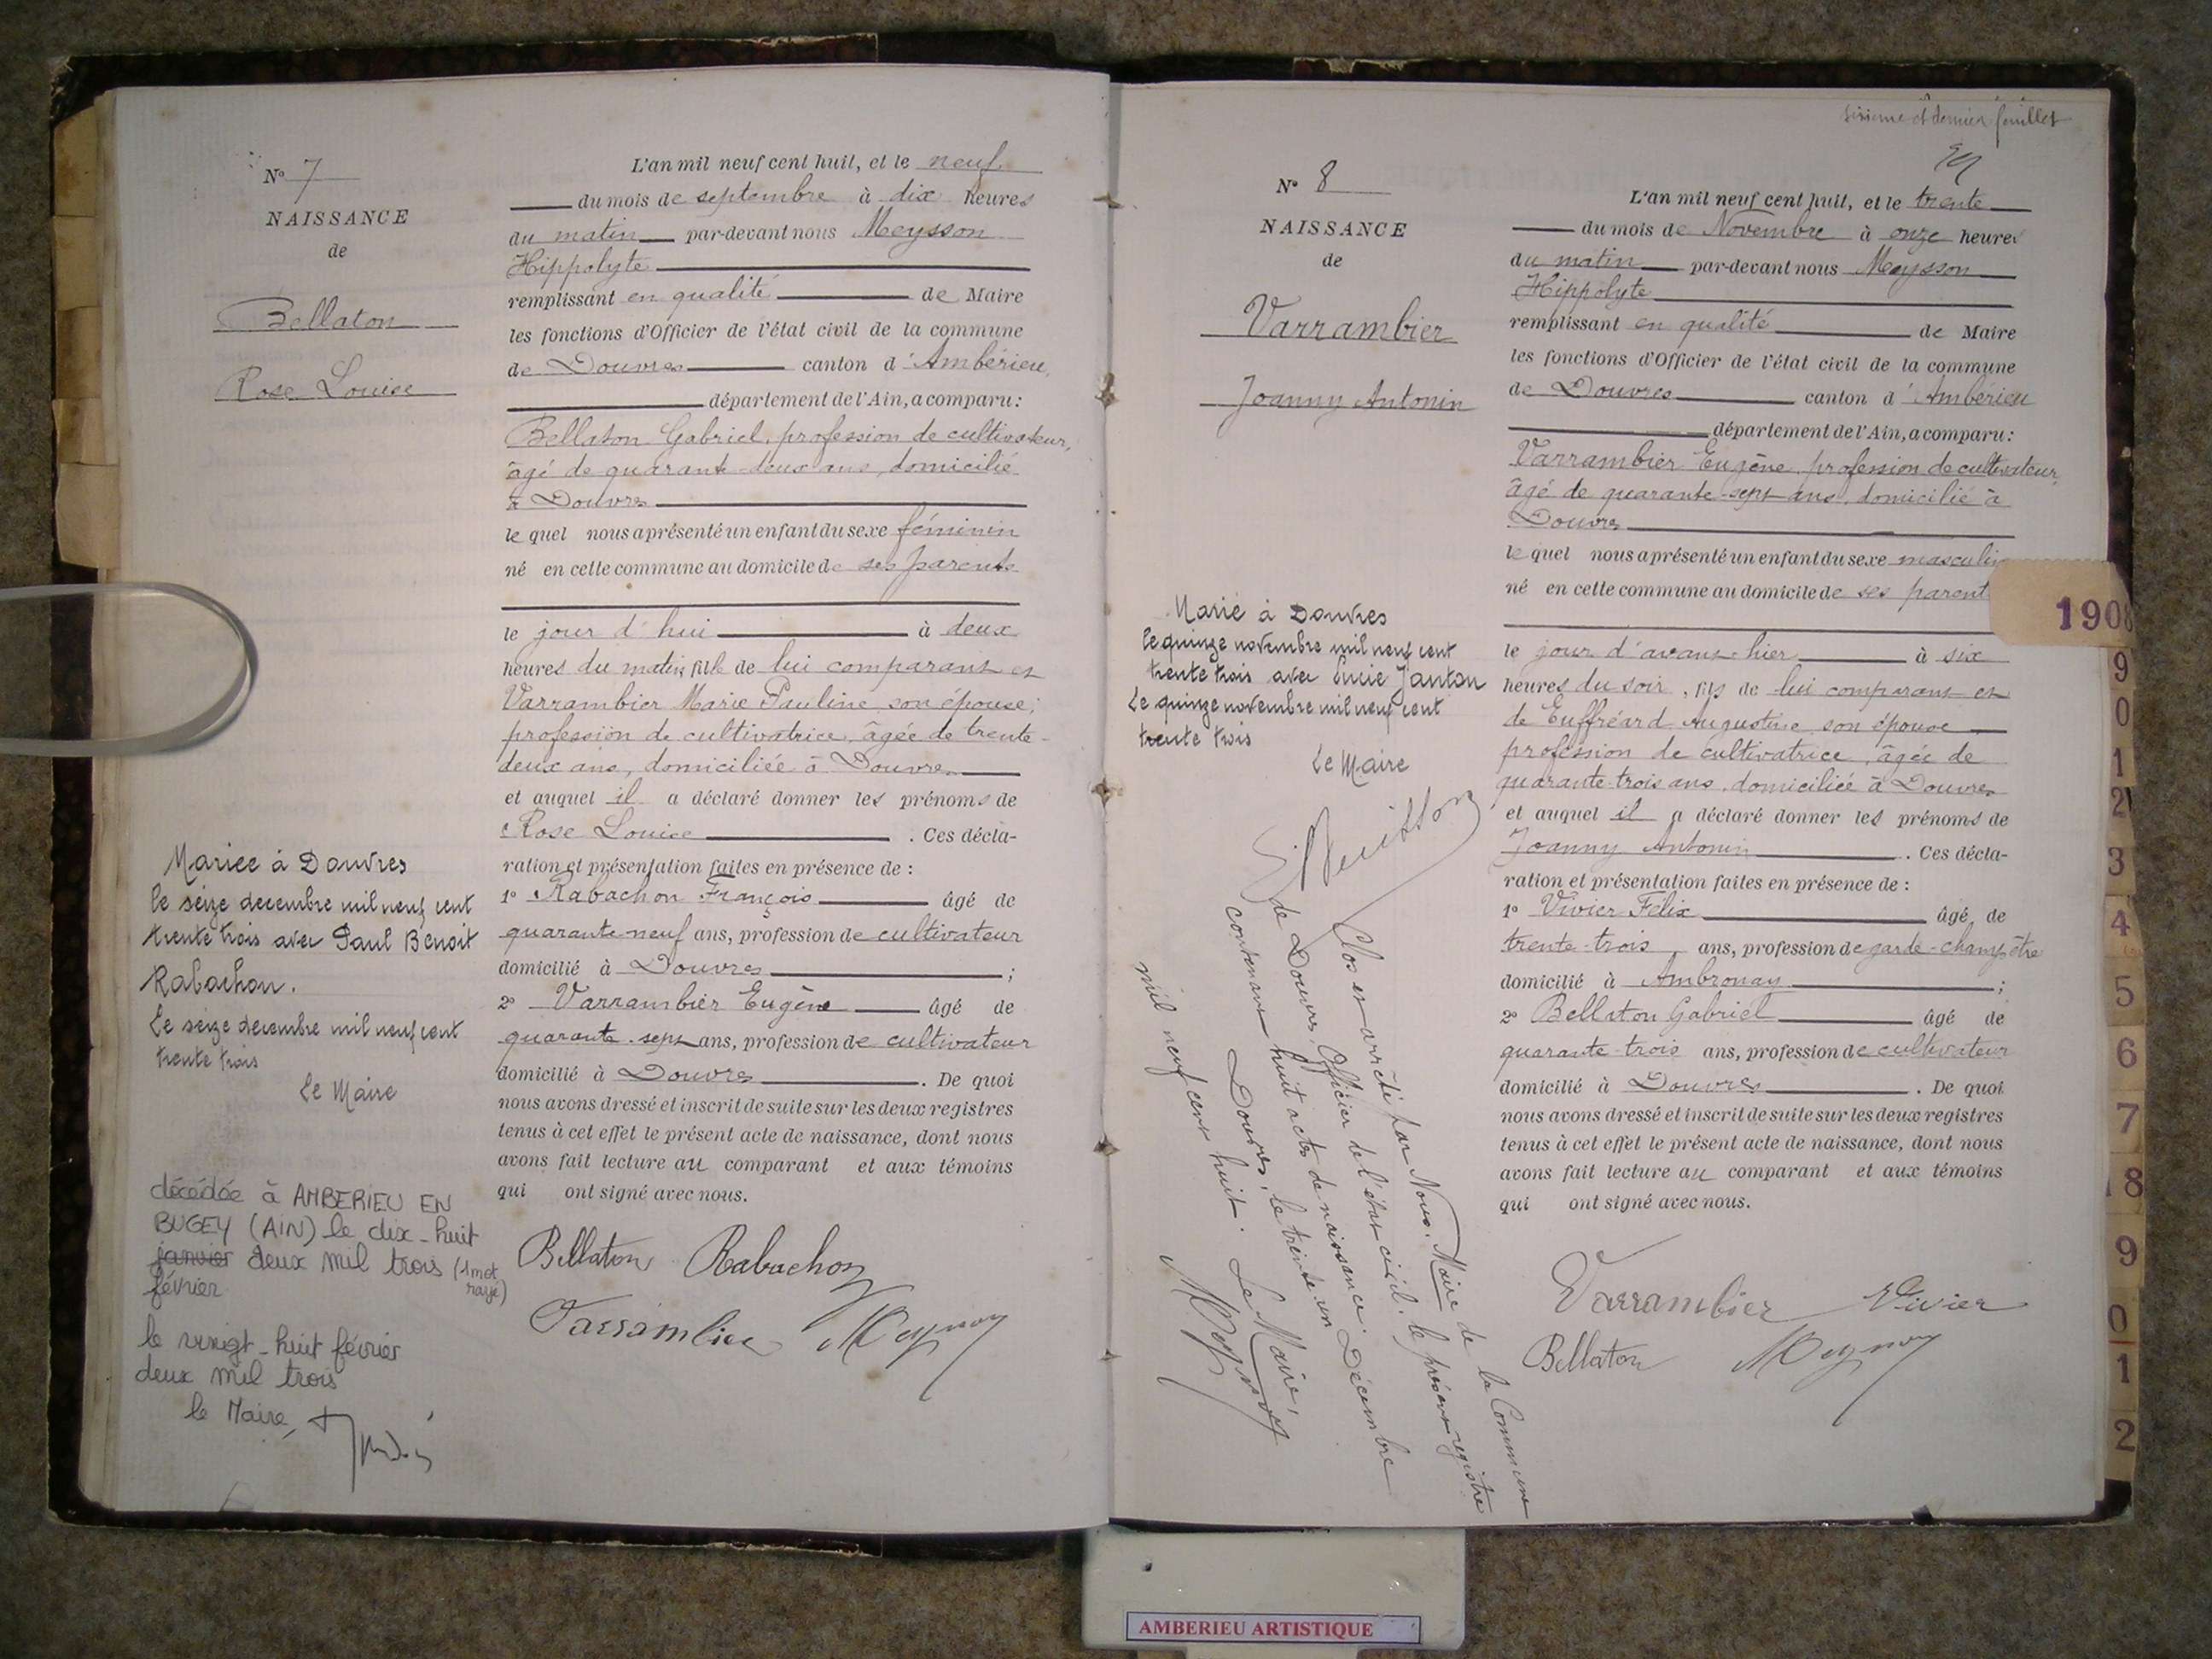 N° 7
NAISSANCE
de
Bellaton
Rose Louise
Mariée à Douvres
le seize decembre mil neuf cent
trente trois avec Paul Benoit
Rabachon.
Le seize decembre mil neuf cent
trente trois
Le Maire
décédée à AMBERIEU EN
BUGEY (AIN) le dix-huit
janvier deux mil trois (1 mot
rayé)
février
le vingt-huit février
deux mil trois
le Maire,
L'an mil neuf cent huit, et le neuf
du mois de septembre à dix heures
du matin par-devant nous Meysson
Hippolyte
remplissant en qualité de Maire
les fonctions d'Officier de l'état civil de la commune
de Douvres canton d'Ambérieu,
département de l'Ain, a comparu:
Bellaton Gabriel, profession de cultivateur,
âgé de quarante-deux ans, domicilié
à Douvres
le quel nous a présenté un enfant du sexe féminin
né en cette commune au domicile de ses parents
le jour d'hui à deux
heures du matin, fille de lui comparant et
Varrambier Marie Pauline, son épouse,
profession de cultivatrice, âgée de trente-
deux ans, domiciliée à Douvres
et auquel il a déclaré donner les prénoms de
Rose Louise . Ces décla-
ration et présentation faites en présence de :
1° Rabachon François âgé de
quarante-neuf ans, profession de cultivateur
domicilié à Douvres ;
2° Varrambier Eugène âgé de
quarante-sept ans, profession de cultivateur
domicilié à Douvres . De quoi
nous avons dressé et inscrit de suite sur les deux registres
tenus à cet effet le présent acte de naissance, dont nous
avons fait lecture au comparant et aux témoins
qui ont signé avec nous.
Bellaton Rabachon
Varrambier Meysson
sixième et dernier feuillet
N° 8
NAISSANCE
de
Varrambier
Joanny Antonin
Marié à Douvres
le quinze novembre mil neuf cent
trente trois avec Lucie Janton
Le quinze novembre mil neuf cent
trente trois
Le Maire
Clos et arrêté par Nous, Maire de la Commune
de Douvres, Officier de l'état civil, le présent registre
contenant huit actes de naissance.
Douvres, le trente un Décembre
mil neuf cent huit. Le Maire,
Meysson
L'an mil neuf cent huit, et le trente
du mois de Novembre à onze heures
du matin par-devant nous Meysson
Hippolyte
remplissant en qualité de Maire
les fonctions d'Officier de l'état civil de la commune
de Douvres canton d'Ambérieu
département de l'Ain, a comparu:
Varrambier Eugène, profession de cultivateur,
âgé de quarante-sept ans, domicilié à
Douvres
le quel nous a présenté un enfant du sexe masculin
né en cette commune au domicile de ses parent
le jour d'avant-hier à six
heures du soir, fils de lui comparant et
de Euffréard Augustine son épouse
profession de cultivatrice, âgée de
quarante-trois ans, domiciliée à Douvres
et auquel il a déclaré donner les prénoms de
Joanny Antonin . Ces décla-
ration et présentation faites en présence de :
1° Vivier Félix âgé de
trente-trois ans, profession de garde-champêtre
domicilié à Ambronay ;
2° Bellaton Gabriel âgé de
quarante-trois ans, profession de cultivateur
domicilié à Douvres . De quoi
nous avons dressé et inscrit de suite sur les deux registres
tenus à cet effet le présent acte de naissance, dont nous
avons fait lecture au comparant et aux témoins
qui ont signé avec nous.
Varrambier Vivier
Bellaton Meysson
1908
9
0
1
2
3
4
5
6
7
18
9
0
1
2
AMBERIEU ARTISTIQUE